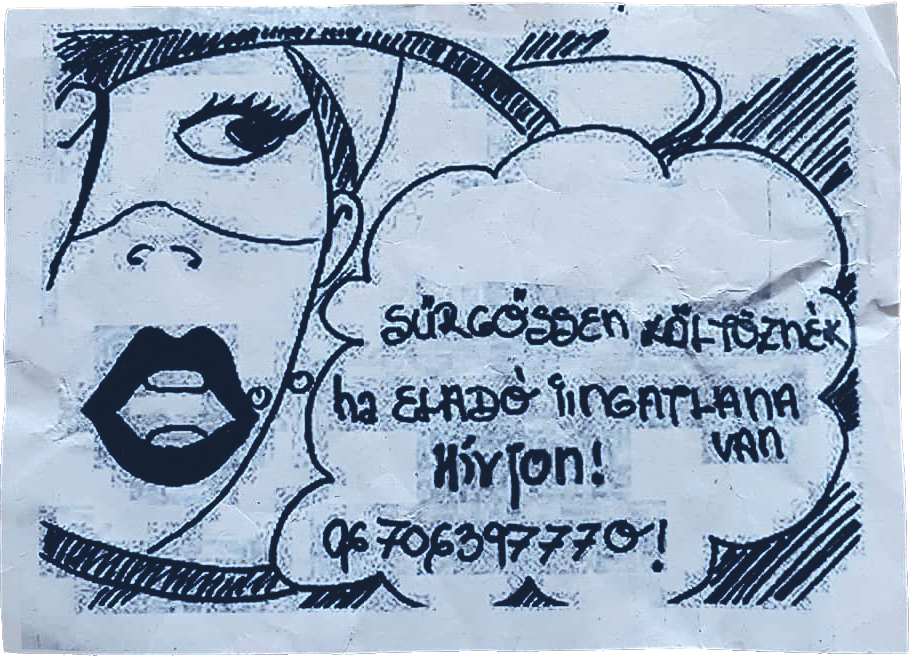 SÜRGÖSSEN KÖLTÖZNÉK
ha ELADÓ iiNGATLANA
VAN
Hívjon!
06706397770!